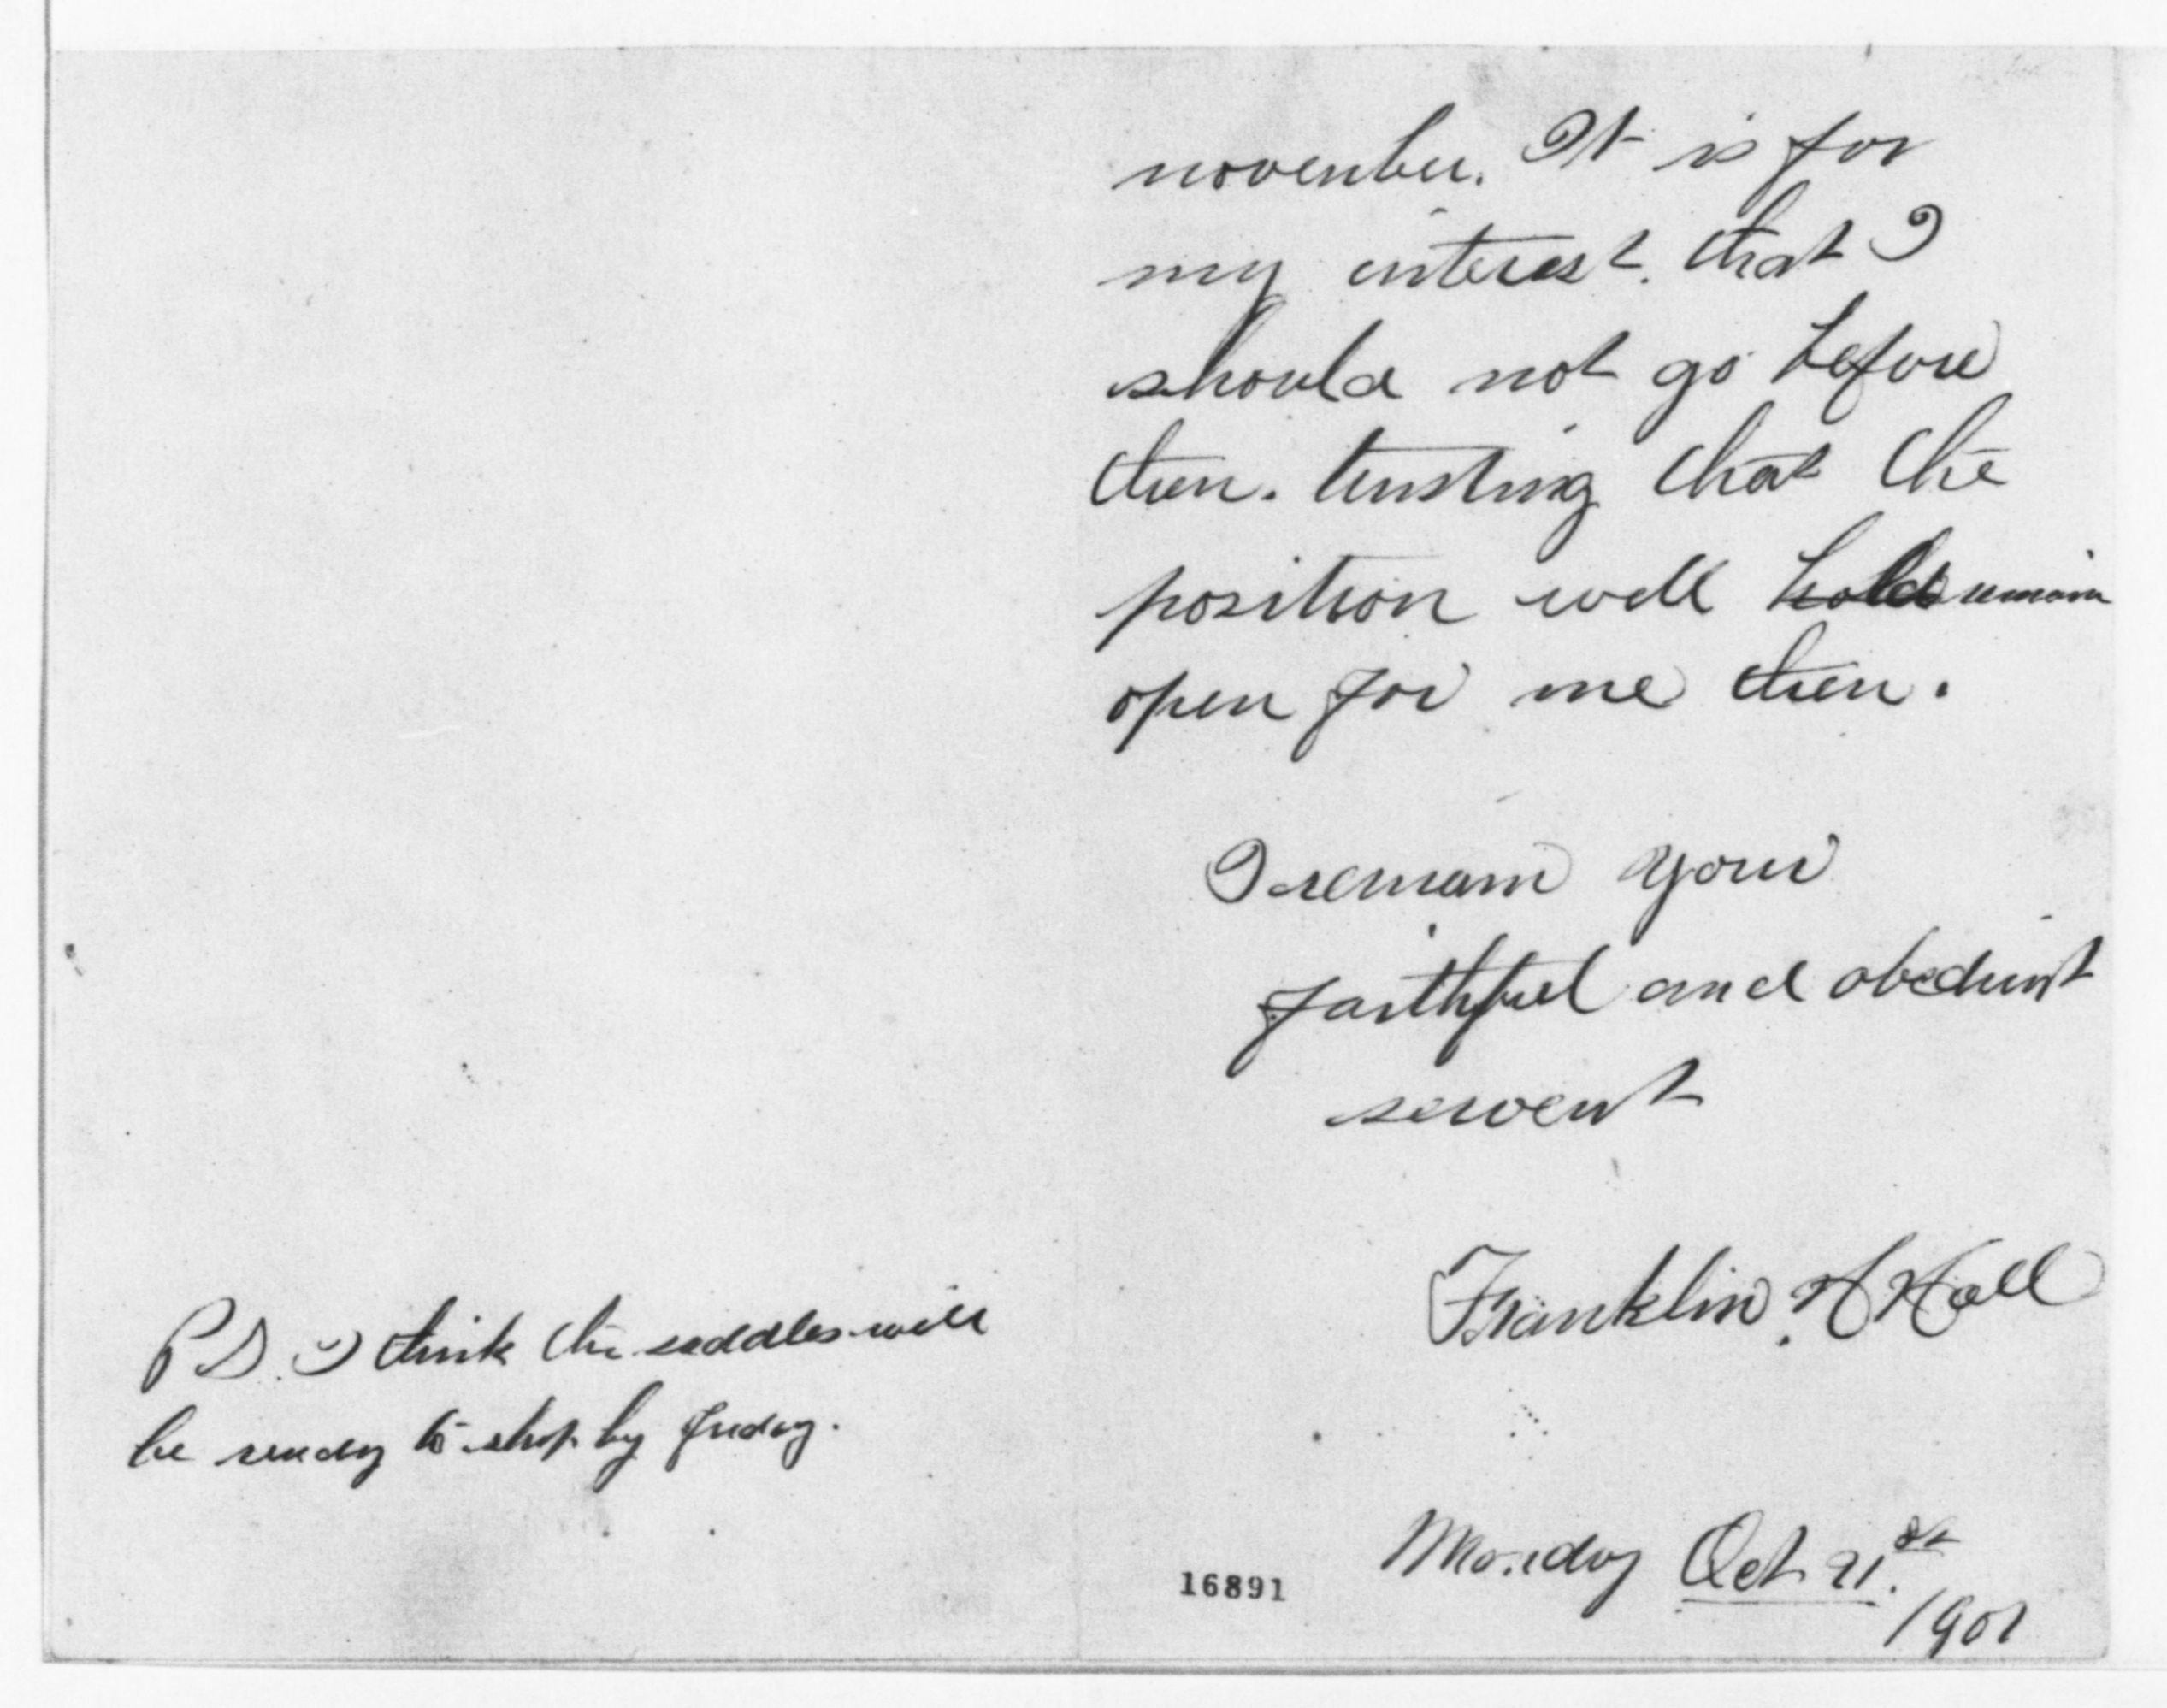 november. It is for
my interest. that I
should not go before
then. trusting that the
position will hold remain
open for me then.
I remain your
faithful and obedient
servent
Franklin. H Hall
Monday Oct 21.st
1901
16891
P S. I think the saddles will
be ready to ship by Friday.